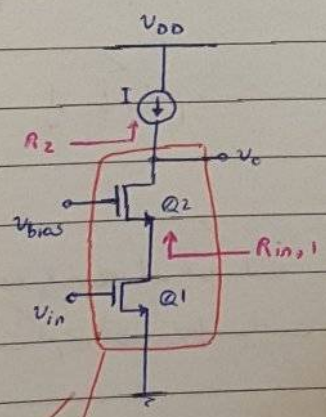 V_DD
I
R2
v_o
Vbias
Q2
Rin,1
Vin
Q1